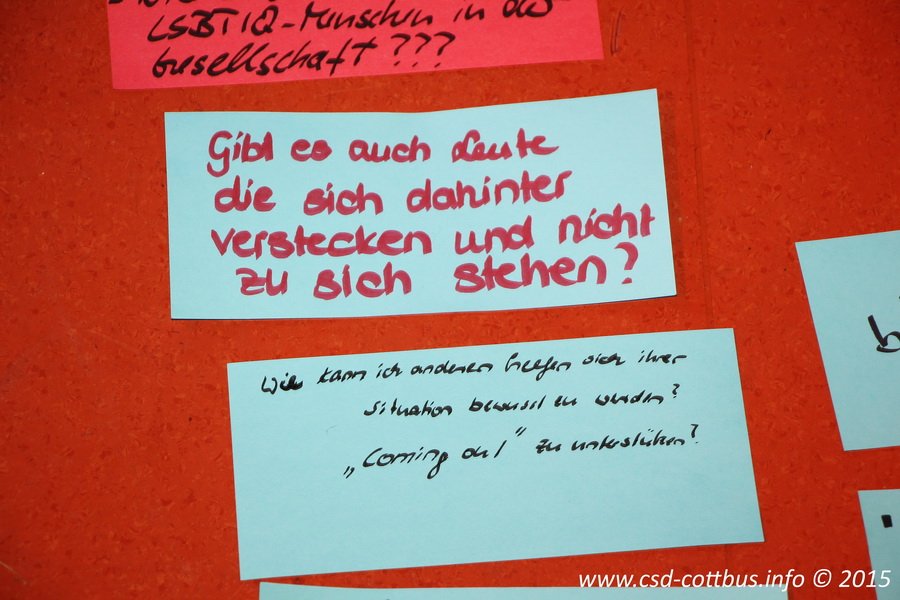 LSBTIQ-Menschen in der
Gesellschaft ???
Gibt es auch Leute
die sich dahinter
verstecken und nicht
zu sich stehen?
Wie kann ich anderen helfen sich ihrer
Situation bewusst zu werden?
„Coming out“ zu unterstützen?
www.csd-cottbus.info © 2015